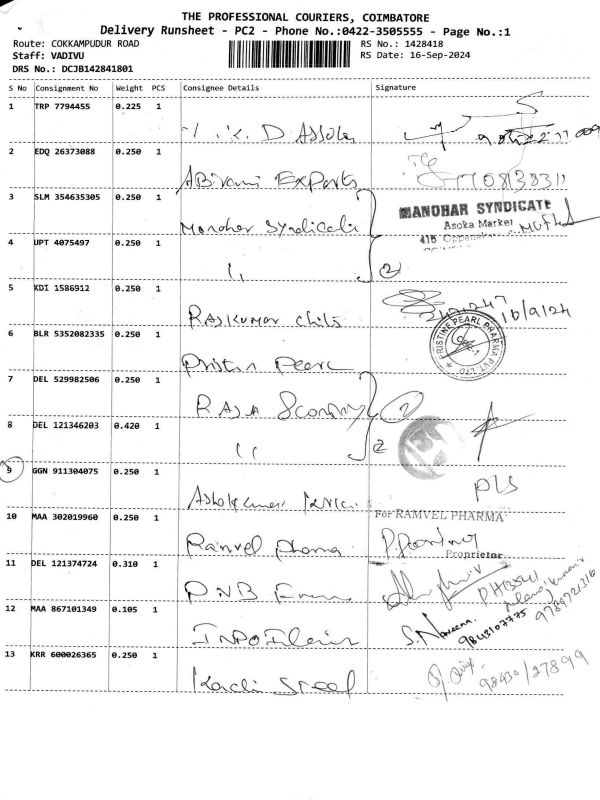 THE PROFESSIONAL COURIERS, COIMBATORE
Delivery Runsheet - PC2 - Phone No.:0422-3505555 - Page No.:1
Route: COKKAMPUDUR ROAD
RS No.: 1428418
Staff: VADIVU
RS Date: 16-Sep-2024
DRS No.: DCJB142841801
S No Consignment No Weight PCS Consignee Details Signature
1 TRP 7794455 0.225 1
2 EDQ 26373088 0.250 1
ABirami Exports
3 SLM 354635305 0.250 1
Manohar Syndicate
MANOHAR SYNDICATE
Asoka Market
416
4 UPT 4075497 0.250 1
" 2
5 KDI 1586912 0.250 1
RAJKUMAR Chits
16/9/24
6 BLR 5352082335 0.250 1
Pristin Pearl
PRISTINE PEARL PHARMA PVT LTD
7 DEL 529982506 0.250 1
RAJA 2
8 DEL 121346203 0.420 1
" 2
9 GGN 911304075 0.250 1
Ashokkumar
pls
10 MAA 302019960 0.250 1
Ramvel Pharma
For RAMVEL PHARMA
Proprietor
11 DEL 121374724 0.310 1
PNB
12 MAA 867101349 0.105 1
S. Naveena.
9843107775
9789721316
13 KRR 600026365 0.250 1
Steel
98430/27899